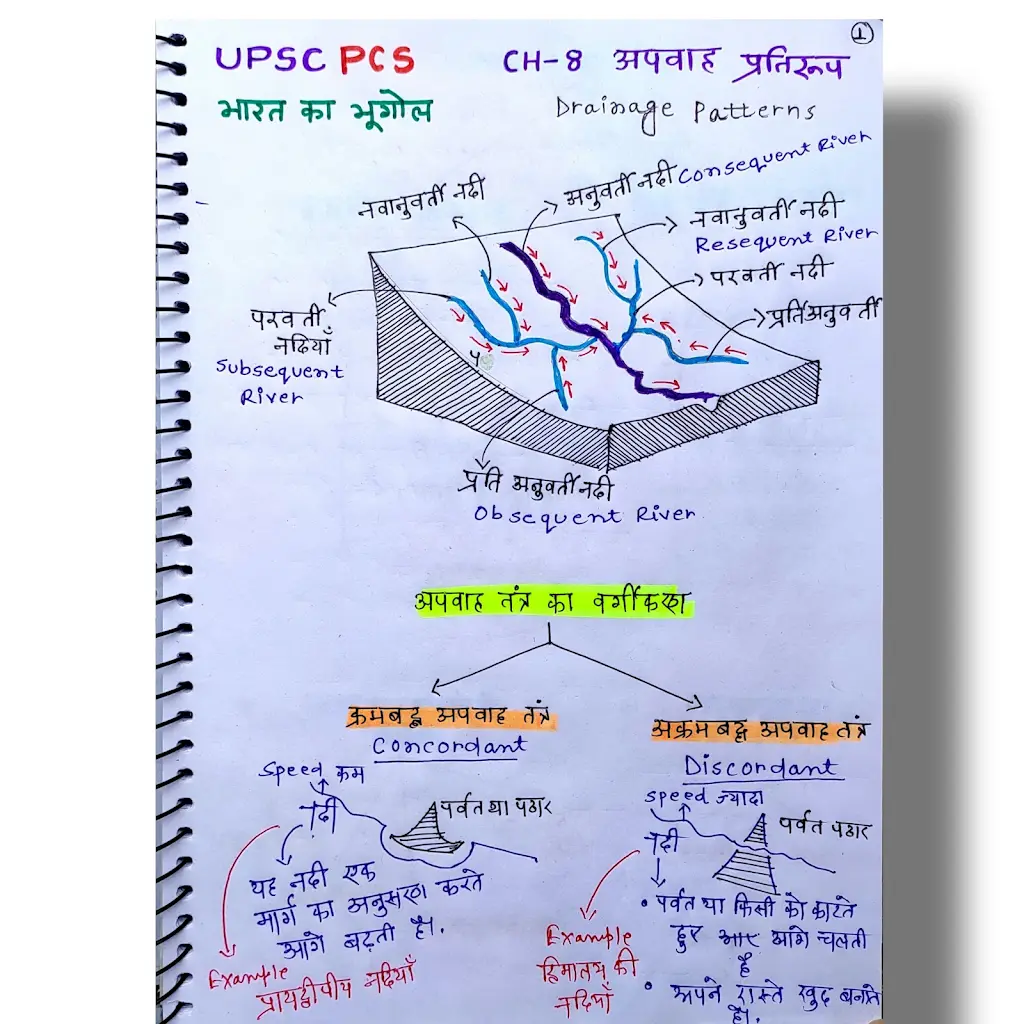 1
UPSC PCS
CH-8 अपवाह प्रतिरूप
भारत का भूगोल
Drainage Patterns
नवानुवर्ती नदी
अनुवर्ती नदी Consequent River
नवानुवर्ती नदी
Resequent River
परवर्ती नदी
प्रतिअनुवर्ती
परवर्ती
नदियाँ
Subsequent
River
प्रति अनुवर्ती नदी
Obsequent River
अपवाह तंत्र का वर्गीकरण
क्रमबद्ध अपवाह तंत्र
Concordant
अक्रमबद्ध अपवाह तंत्र
Discordant
Speed कम
नदी
पर्वत या पठार
यह नदी एक
मार्ग का अनुसरण करते
आगे बढ़ती है।
Example
प्रायद्वीपीय नदियाँ
speed ज्यादा
नदी
पर्वत पठार
• पर्वत या किसी को काटते
हुए आगे चलती
है
• अपने रास्ते खुद बनाते
है।
Example
हिमालय की
नदियाँ